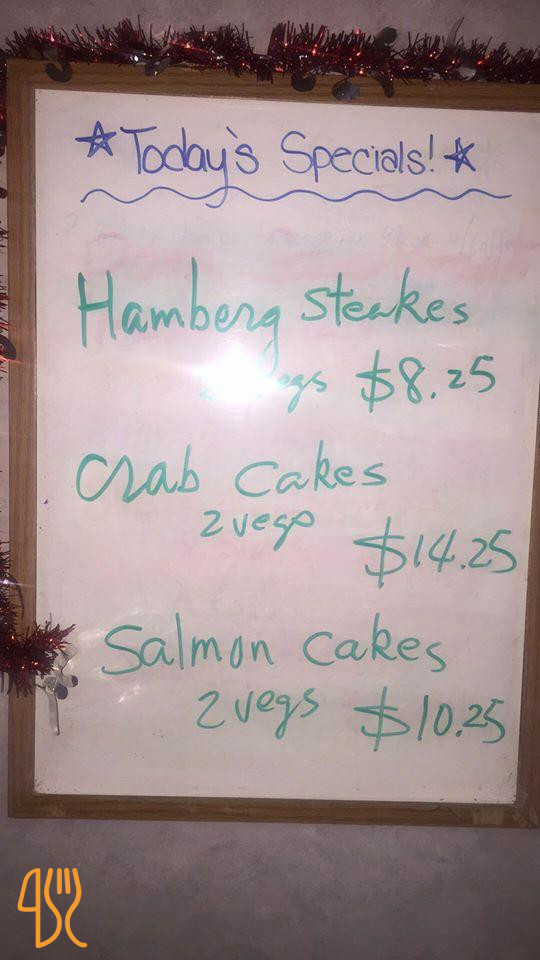 Today's Specials!
Hamberg Steakes
$8.25
Crab Cakes
2 vegs
$14.25
Salmon Cakes
2 vegs $10.25